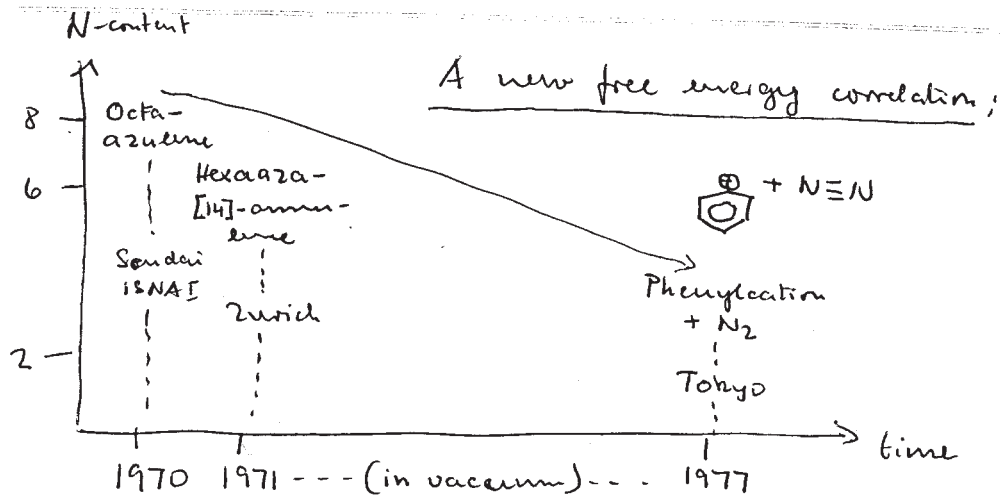 N-content
A new free energy correlation,
8
Octa-
azulene
6
Hexaaza-
[14]-annu-
lene
⊕ + N≡N
Sendai
ISNA I
Zürich
Phenylcation
+ N2
2
Tokyo
time
1970 1971 - - - (in vacuum) - - - . 1977